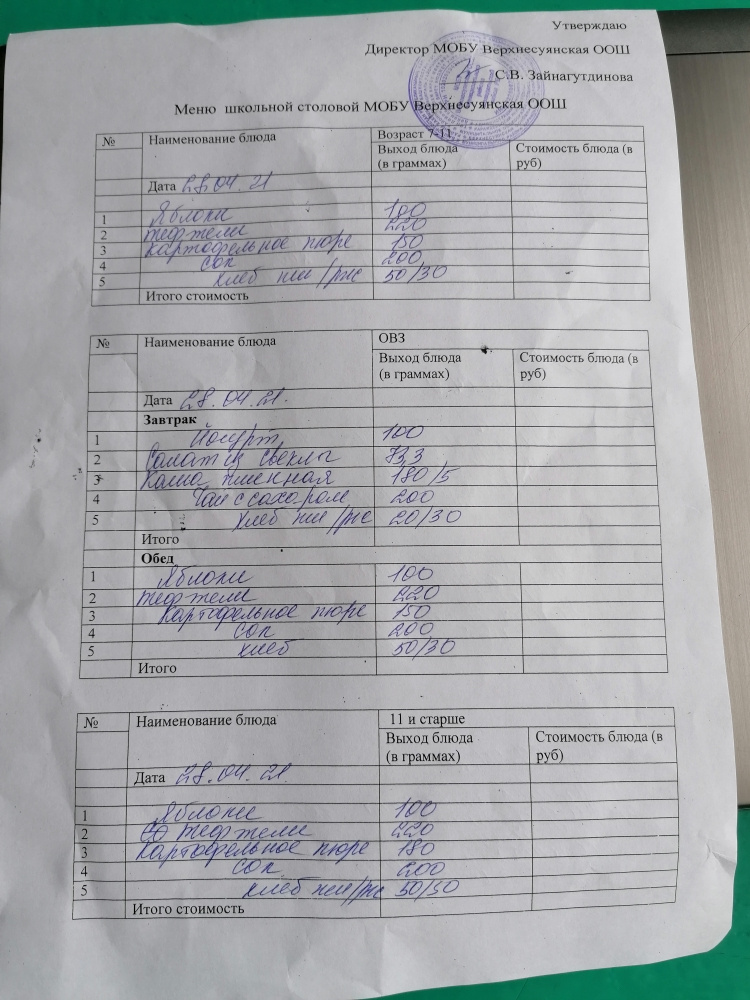 Утверждаю
Директор МОБУ Верхнесуянская ООШ
С.В. Зайнагутдинова
Меню школьной столовой МОБУ Верхнесуянская ООШ
№ Наименование блюда Возраст 7-11
Выход блюда (в граммах) Стоимость блюда (в руб)
Дата 28.04.21
1 Яблоки 100
2 тефтели 220
3 картофельное пюре 150
4 сок 200
5 хлеб пш/рж 50/30
Итого стоимость
№ Наименование блюда ОВЗ
Выход блюда (в граммах) Стоимость блюда (в руб)
Дата 28.04.21.
Завтрак
1 Йогурт 100
2 Салат из свеклы 73,3
3 Каша пшенная 180/5
4 Чай с сахаром 200
5 хлеб пш/рж 20/30
Итого
Обед
1 Яблоки 100
2 тефтели 220
3 Картофельное пюре 150
4 сок 200
5 хлеб 50/30
Итого
№ Наименование блюда 11 и старше
Выход блюда (в граммах) Стоимость блюда (в руб)
Дата 28.04.21
1 Яблоки 100
2 тефтели 220
3 Картофельное пюре 180
4 сок 200
5 хлеб пш/рж 50/50
Итого стоимость